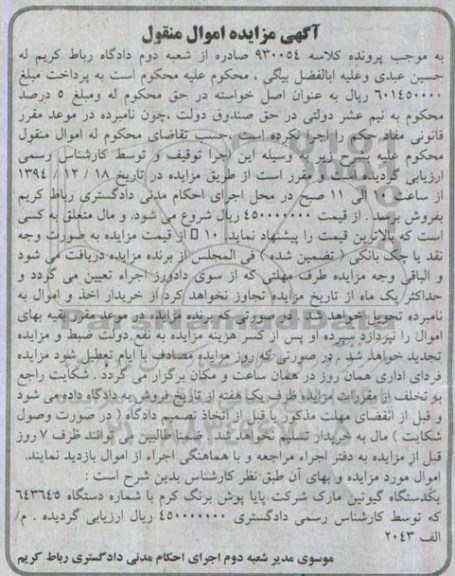 آگهی مزایده اموال منقول
به موجب پرونده کلاسه ۹۳۰۰۵۴ صادره از شعبه دوم دادگاه رباط کریم له
حسین عبدی وعلیه ابالفضل بیگی ، محکوم علیه محکوم است به پرداخت مبلغ
۶۰۱۴۵۰۰۰۰ ریال به عنوان اصل خواسته در حق محکوم له ومبلغ ۵ درصد
محکوم به نیم عشر دولتی در حق صندوق دولت ،چون نامبرده در موعد مقرر
قانونی مفاد حکم را اجرا نکرده است ،حسب تقاضای محکوم له اموال منقول
محکوم علیه بشرح زیر به وسیله این اجرا توقیف و توسط کارشناس رسمی
ارزیابی گردیده است و مقرر است از طریق مزایده در تاریخ ۱۸ / ۱۲ / ۱۳۹۴
از ساعت ۱۰ الی ۱۱ صبح در محل اجرای احکام مدنی دادگستری رباط کریم
بفروش برسد . از قیمت ۴۵۰۰۰۰۰۰۰ ریال شروع می شود. و مال متعلق به کسی
است که بالاترین قیمت را پیشنهاد نماید. ۱۰ از قیمت مزایده به صورت وجه
نقد یا چک بانکی ( تضمین شده ) فی المجلس از برنده مزایده دریافت می شود
و الباقی وجه مزایده ظرف مهلتی که از سوی دادورز اجراء تعیین می گردد و
حداکثر یک ماه از تاریخ مزایده تجاوز نخواهد کرد از خریدار اخذ و اموال به
نامبرده تحویل خواهد شد . در صورتی که برنده مزایده در موعد مقرر بقیه بهای
اموال را نپردازد سپرده او پس از کسر هزینه مزایده به نفع دولت ضبط و مزایده
تجدید خواهد شد . در صورتی که روز مزایده مصادف با ایام تعطیل شود مزایده
فردای اداری همان روز در همان ساعت و مکان برگزار می گردد . شکایت راجع
به تخلف از مقررات مزایده ظرف یک هفته از تاریخ فروش به دادگاه داده می شود
و قبل از انقضای مهلت مذکور یا قبل از اتخاذ تصمیم دادگاه ( در صورت وصول
شکایت ) مال به خریدار تسلیم نخواهد شد . ضمنا طالبین می توانند ظرف ۷ روز
قبل از مزایده به دفتر اجراء مراجعه و با هماهنگی اجراء از اموال بازدید نمایند.
اموال مورد مزایده و بهای آن طبق نظر کارشناس بدین شرح است :
یکدستگاه گیوتین مارک شرکت پایا پوش برنگ کرم با شماره دستگاه ۶۴۳۶۴۵
که توسط کارشناس رسمی دادگستری ۴۵۰۰۰۰۰۰۰ ریال ارزیابی گردیده . م/
الف ۲۰۴۳
موسوی مدیر شعبه دوم اجرای احکام مدنی دادگستری رباط کریم